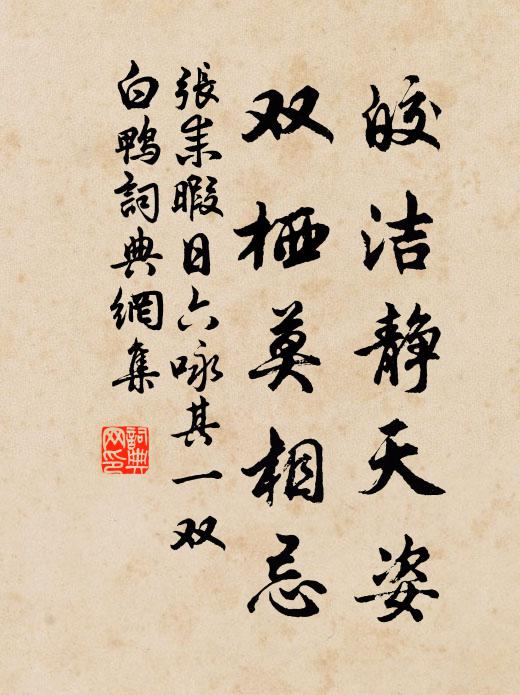 皎洁静天姿
双栖莫相忌
張耒暇日六咏其一双
白鴨詞典網集
詞典网印